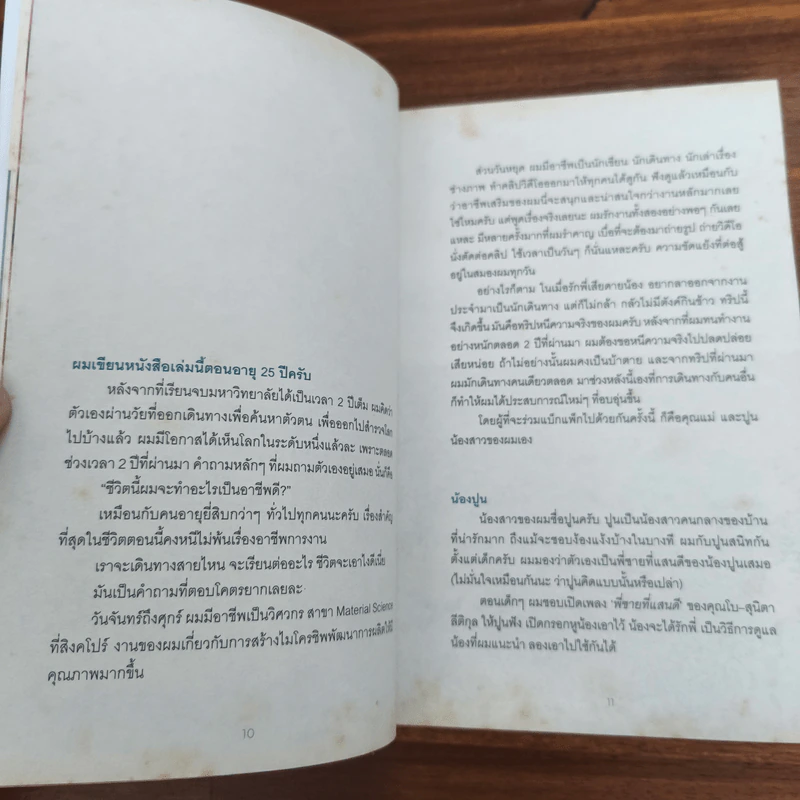 ผมเขียนหนังสือเล่มนี้ตอนอายุ 25 ปีครับ
หลังจากที่เรียนจบมหาวิทยาลัยได้เป็นเวลา 2 ปีเต็ม ผมคิดว่า
ตัวเองผ่านวัยที่ออกเดินทางเพื่อค้นหาตัวตน เพื่อออกไปสำรวจโลก
ไปบ้างแล้ว ผมมีโอกาสได้เห็นโลกในระดับหนึ่งแล้วละ เพราะตลอด
ช่วงเวลา 2 ปีที่ผ่านมา คำถามหลักๆ ที่ผมถามตัวเองอยู่เสมอ นั่นก็คือ
"ชีวิตนี้ผมจะทำอะไรเป็นอาชีพดี?"
เหมือนกับคนอายุยี่สิบกว่าๆ ทั่วไปทุกคนนะครับ เรื่องสำคัญ
ที่สุดในชีวิตตอนนี้คงหนีไม่พ้นเรื่องอาชีพการงาน
เราจะเดินทางสายไหน จะเรียนต่ออะไร ชีวิตจะเอาไงดีเนี่ย
มันเป็นคำถามที่ตอบโคตรยากเลยละ
วันจันทร์ถึงศุกร์ ผมมีอาชีพเป็นวิศวกร สาขา Material Science
ที่สิงคโปร์ งานของผมเกี่ยวกับการสร้างไมโครชิพพัฒนาการผลิตให้มี
คุณภาพมากขึ้น
10
ส่วนวันหยุด ผมมีอาชีพเป็นนักเขียน นักเดินทาง นักเล่าเรื่อง
ช่างภาพ ทำคลิปวิดีโอออกมาให้ทุกคนได้ดูกัน ฟังดูแล้วเหมือนกับ
ว่าอาชีพเสริมของผมนี่จะสนุกและน่าสนใจกว่างานหลักมากเลย
ใช่ไหมครับ แต่พูดเรื่องจริงเลยนะ ผมรักงานทั้งสองอย่างพอๆ กันเลย
แหละ มีหลายครั้งมากที่ผมรำคาญ เบื่อที่จะต้องมาถ่ายรูป ถ่ายวิดีโอ
นั่งตัดต่อคลิป ใช้เวลาเป็นวันๆ ก็นั่นแหละครับ ความขัดแย้งที่ต่อสู้
อยู่ในสมองผมทุกวัน
อย่างไรก็ตาม ในเมื่อรักพี่เสียดายน้อง อยากลาออกจากงาน
ประจำมาเป็นนักเดินทาง แต่ก็ไม่กล้า กลัวไม่มีตังค์กินข้าว ทริปนี้
จึงเกิดขึ้น มันคือทริปหนีความจริงของผมครับ หลังจากที่ผมทนทำงาน
อย่างหนักตลอด 2 ปีที่ผ่านมา ผมต้องขอหนีความจริงไปปลดปล่อย
เสียหน่อย ถ้าไม่อย่างนั้นผมคงเป็นบ้าตาย และจากทริปที่ผ่านมา
ผมมักเดินทางคนเดียวตลอด มาช่วงหลังนี้เองที่การเดินทางกับคนอื่น
ก็ทำให้ผมได้ประสบการณ์ใหม่ๆ ที่อบอุ่นขึ้น
โดยผู้ที่จะร่วมแบ็กแพ็กไปด้วยกันครั้งนี้ ก็คือคุณแม่ และปูน
น้องสาวของผมเอง
น้องปูน
น้องสาวของผมชื่อปูนครับ ปูนเป็นน้องสาวคนกลางของบ้าน
ที่น่ารักมาก ถึงแม้จะชอบง้องแง้งบ้างในบางที ผมกับปูนสนิทกัน
ตั้งแต่เด็กครับ ผมมองว่าตัวเองเป็นพี่ชายที่แสนดีของน้องปูนเสมอ
(ไม่มั่นใจเหมือนกันนะ ว่าปูนคิดแบบนั้นหรือเปล่า)
ตอนเด็กๆ ผมชอบเปิดเพลง 'พี่ชายที่แสนดี' ของคุณโบ-สุนิตา
ลีติกุล ให้ปูนฟัง เปิดกรอกหูน้องเอาไว้ น้องจะได้รักพี่ เป็นวิธีการดูแล
น้องที่ผมแนะนำ ลองเอาไปใช้กันได้
11